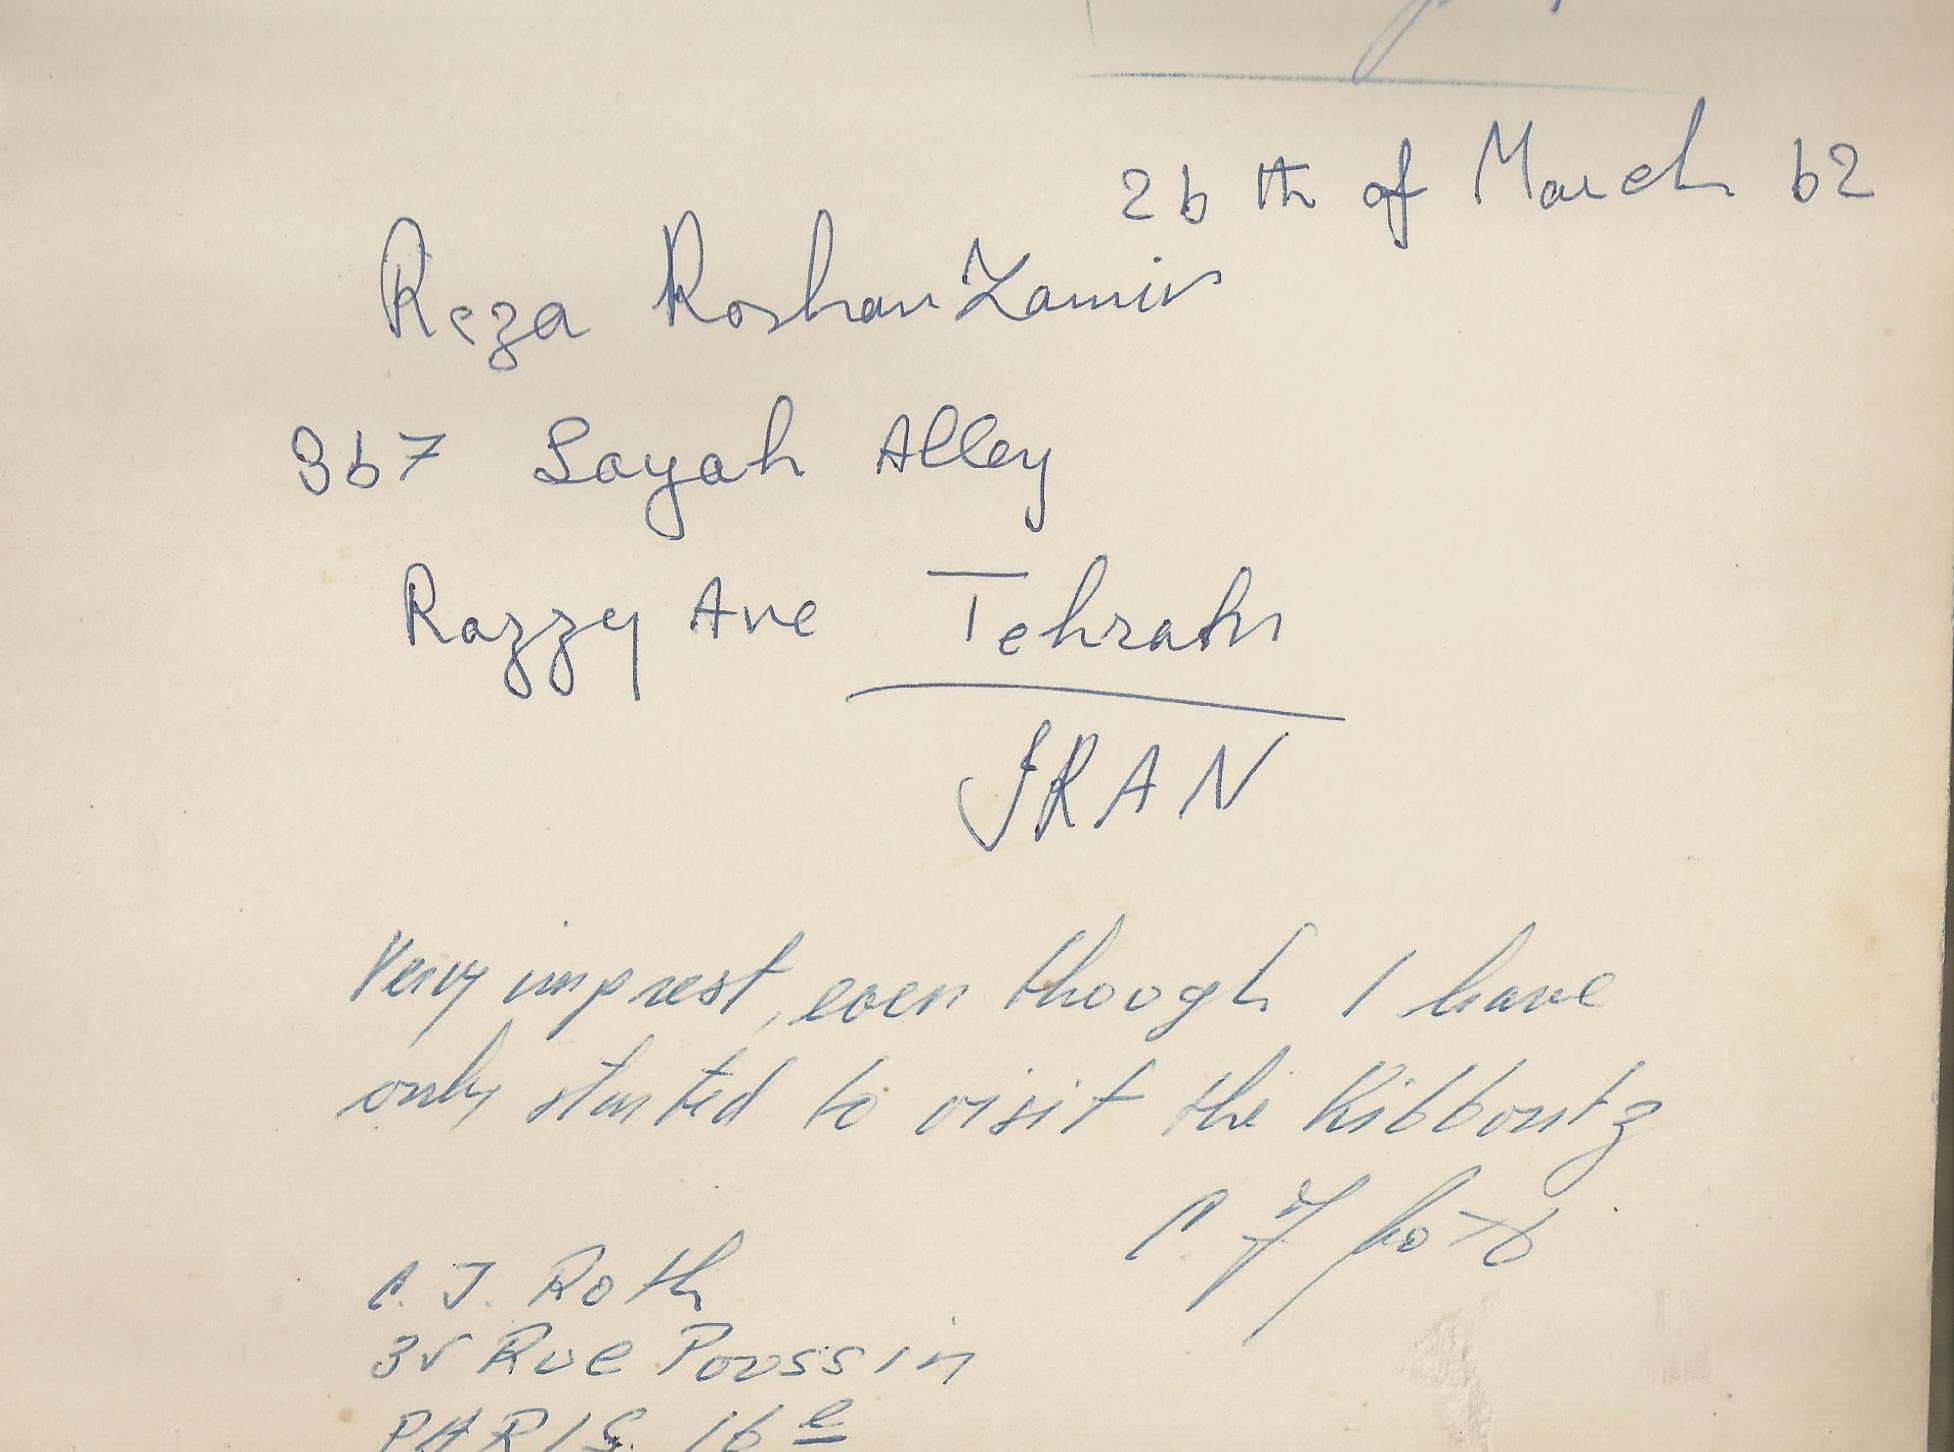 26th of March 62
Reza Roshan Zamir
367 Sayah Alley
Razzy Ave Tehrahn
IRAN
Very imprest, even though I have
only started to visit the Kibboutz
C. J. Roth
Rue Poussin
PARIS 16e